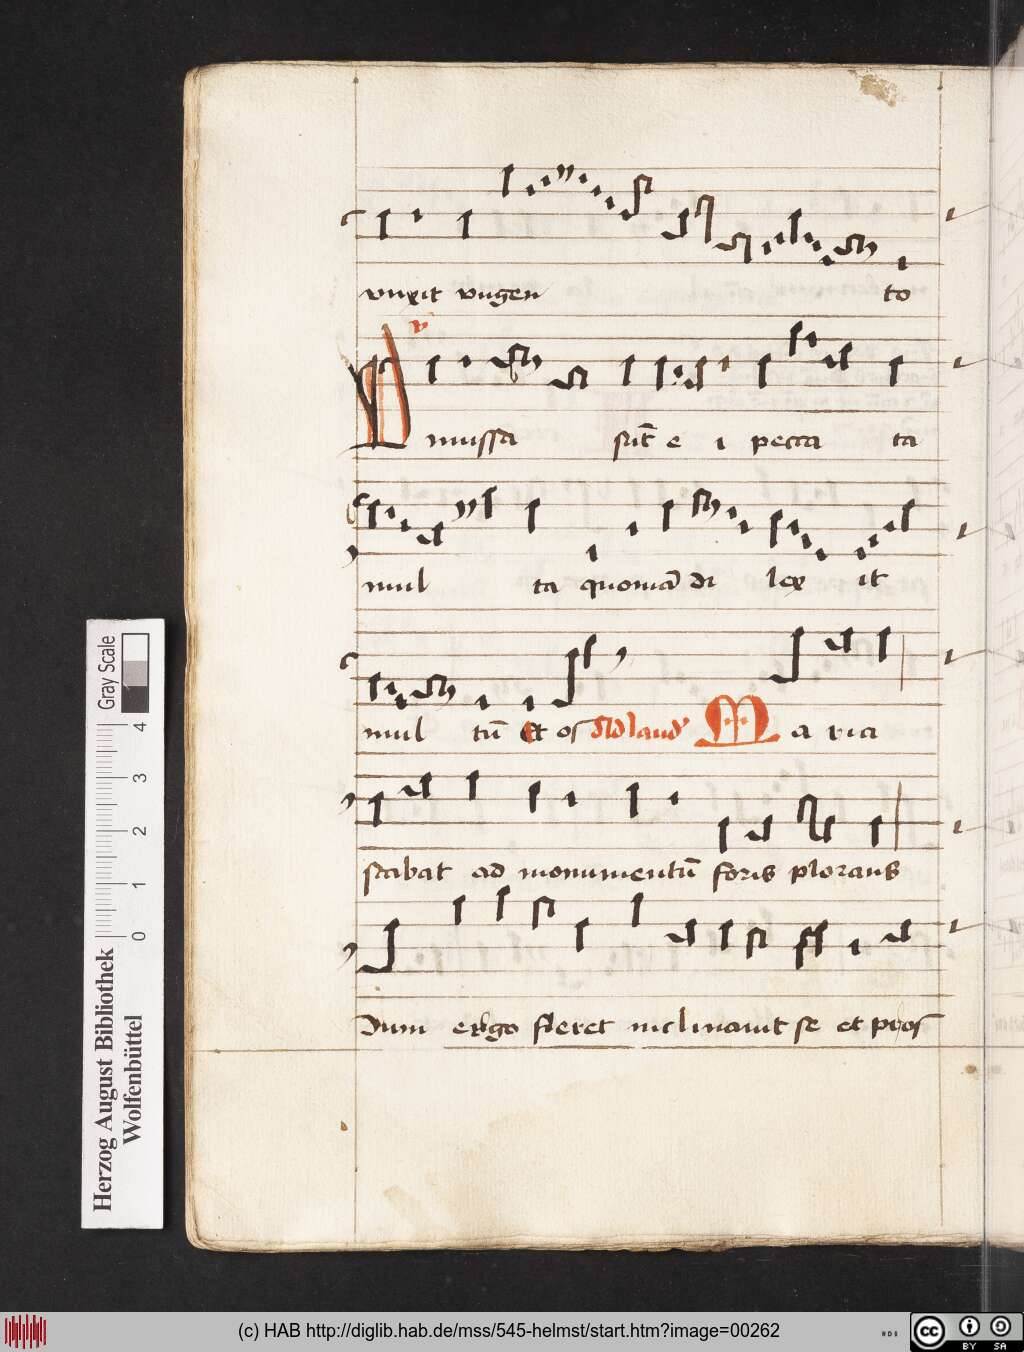 unxit ungen to
v
Dimissa sūt e i pecca ta
mul ta quoniā di lex it
mul tū Et os Ad laud Ma ria
stabat ad monumentū foris plorans
Dum ergo fleret inclinauit se et pros
Gray Scale
4
3
2
1
0
Herzog August Bibliothek
Wolfenbüttel
(c) HAB http://diglib.hab.de/mss/545-helmst/start.htm?image=00262
cc BY SA